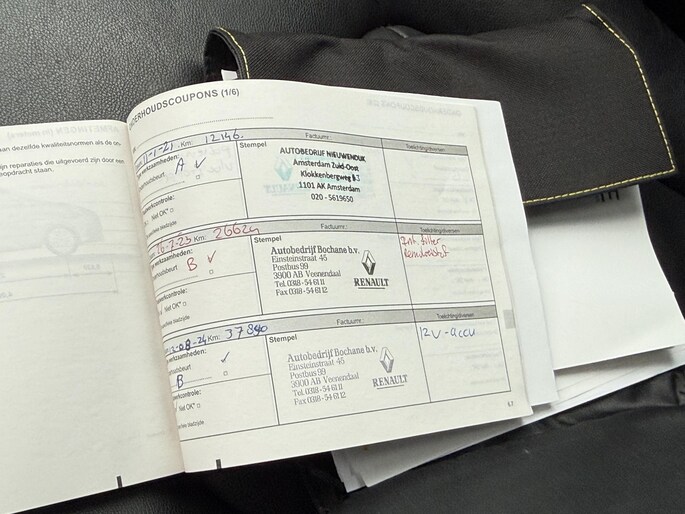 an dezelfde kwaliteitsnormen als de on-
jn reparaties die uitgevoerd zijn door een
opdracht staan.
DERHOUDSCOUPONS (1/6)
11-1-21 Km: 12146.
Factuurnr.:
werkzaamheden:
A ✓
Stempel
AUTOBEDRIJF NIEUWENDIJK
Amsterdam Zuid-Oost
Klokkenbergweg
1101 AK Amsterdam
020 - 5619650
Toelichting/diversen
Niet OK*
Km: 26624
Factuurnr.:
werkzaamheden:
B ✓
Stempel
Autobedrijf Bochane b.v.
Einsteinstraat 45
Postbus 99
3900 AB Veenendaal
Tel. 0318 - 54 61 11
Fax 0318 - 54 61 12
RENAULT
Toelichting/diversen
Int. filter
Remvloeistof
Niet OK*
-08-24 Km: 37890
Factuurnr.:
werkzaamheden:
✓
B
Stempel
Autobedrijf Bochane b.v.
Einsteinstraat 45
Postbus 99
3900 AB Veenendaal
Tel. 0318 - 54 61 11
Fax 0318 - 54 61 12
RENAULT
Toelichting/diversen
12V-accu
Niet OK*